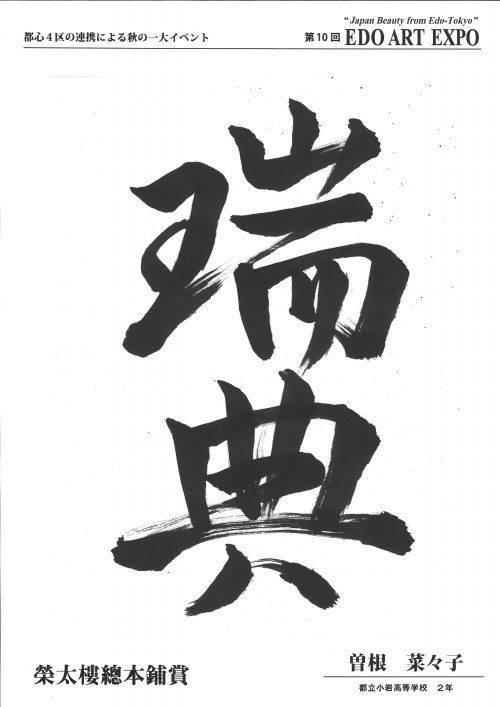 都心4区の連携による秋の一大イベント
"Japan Beauty from Edo-Tokyo"
第10回 EDO ART EXPO
瑞
典
榮太樓總本鋪賞
曽根 菜々子
都立小岩高等学校 2年